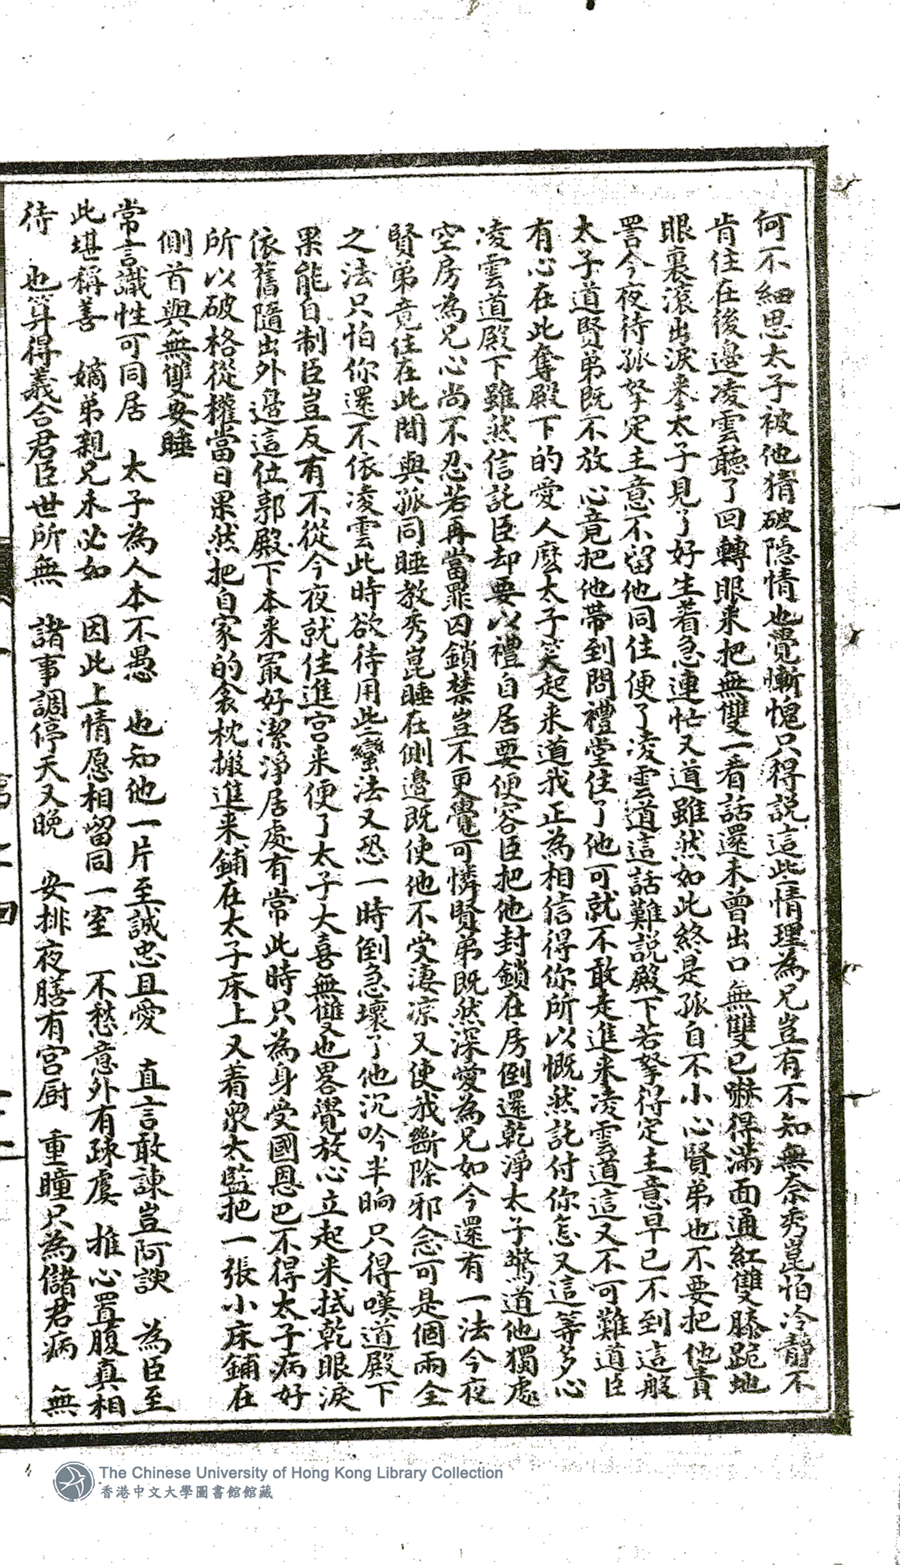 何不細思太子被他猜破隱情也覺慚愧只得説這些情理為兄豈有不知無奈秀崑怕冷靜不
肯住在後邊凌雲聽了回轉眼来把無雙一看話還未曾出口無雙已嚇得滿面通紅雙膝跪地
眼裏滾出淚来太子見了好生着急連忙又道雖然如此終是孤自不小心賢弟也不要把他責
詈今夜待孤拏定主意不留他同住便了凌雲道這話難説殿下若拏得定主意早已不到這般
太子道賢弟既不放心竟把他帶到問禮堂住了他可就不敢走進来凌雲道這又不可難道臣
有心在此奪殿下的愛人麽太子笑起来道我正為相信得你所以慨然託付你怎又這等多心
凌雲道殿下雖然信託臣却要以禮自居要便容臣把他封鎖在房倒還乾淨太子驚道他獨處
空房為兄心尚不忍若再當罪囚鎖禁豈不更覺可憐賢弟既然深愛為兄如今還有一法今夜
賢弟竟住在此間與孤同睡教秀崑睡在側邊既使他不受淒凉又使我斷除邪念可是個兩全
之法只怕你還不依凌雲此時欲待用些蠻法又恐一時倒急壞了他沉吟半晌只得嘆道殿下
果能自制臣豈反有不從今夜就住進宮来便了太子大喜無雙也畧覺放心立起来拭乾眼淚
依舊隨出外邉這位郭殿下本来最好潔淨居處有常此時只為身受國恩巴不得太子病好
所以破格從權當日果然把自家的衾枕搬進来鋪在太子床上又着眾太監把一張小床鋪在
側首與無雙安睡
常言識性可同居 太子為人本不愚 也知他一片至誠忠且愛 直言敢諫豈阿諛 為臣至
此堪稱善 嫡弟親兄未必如 因此上情愿相留同一室 不愁意外有疎虞 推心置腹真相
待 也算得義合君臣世所無 諸事調停天又晚 安排夜膳有宮厨 重瞳只為儲君病 無
The Chinese University of Hong Kong Library Collection
香港中文大學圖書館館藏